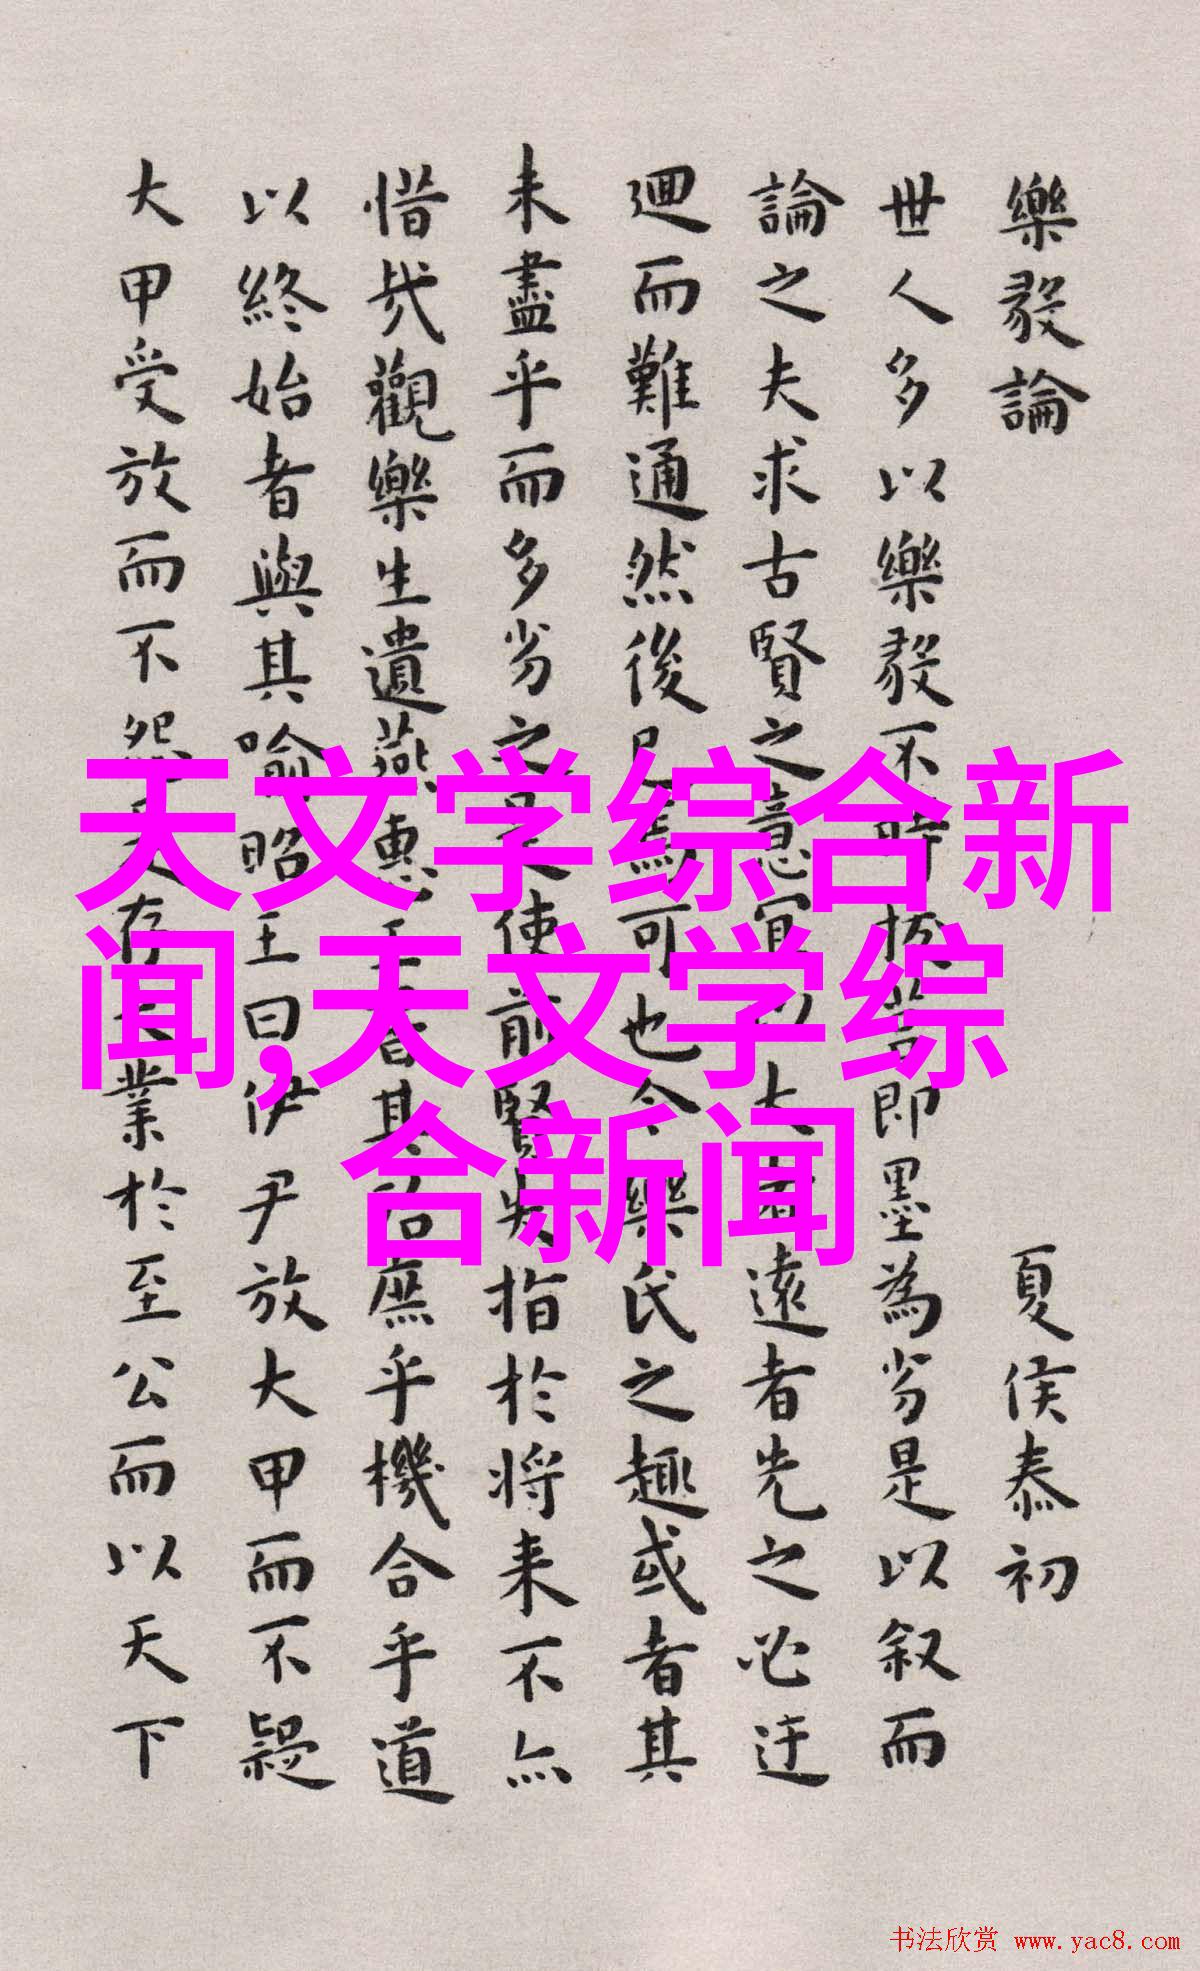 樂毅論 夏侯泰初
世人多以樂毅不時拔莒即墨為劣是以叙而
論之夫求古賢之意宜以大者遠者先之必迂
迴而難通然後已焉可也今樂氏之趣或者其
未盡乎而多劣之是使前賢失指於將来不亦
惜哉觀樂生遺燕惠王書其殆庶乎機合乎道
以終始者與其喻昭王曰伊尹放大甲而不疑
大甲受放而不怨是存大業於至公而以天下
天文学综合新
闻,天文学综
合新闻
书法欣赏 www.yac8.com